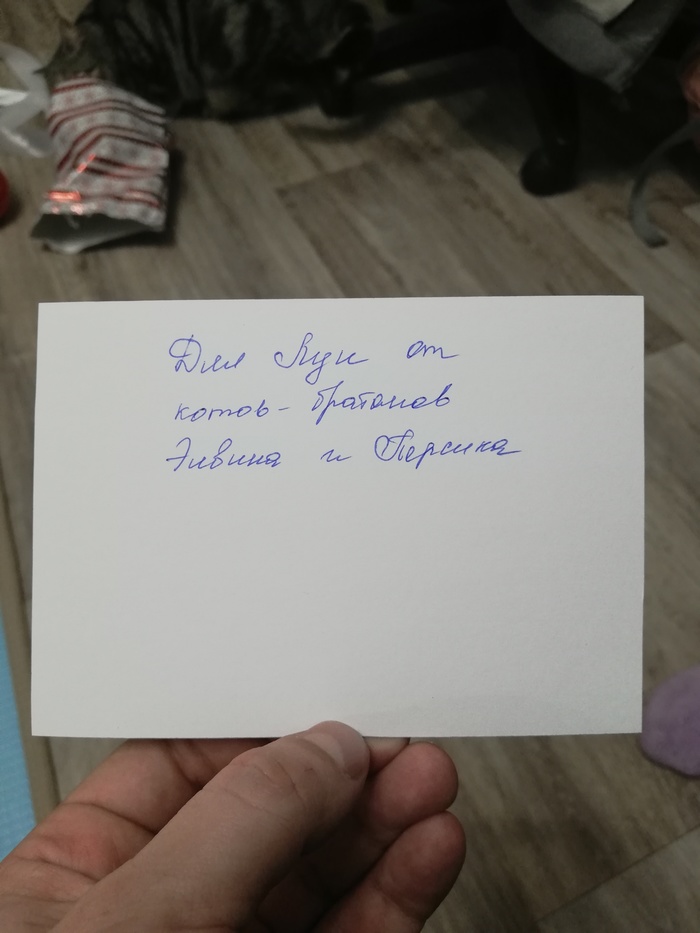 Для Луи от
котов-братанов
Элвина и Персика